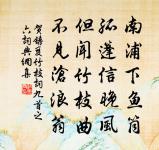 南浦下魚筒
孤蓬信晚風
但聞竹枝曲
不見滄浪翁
賀鑄夏竹枝詞九首之
六詞典網集